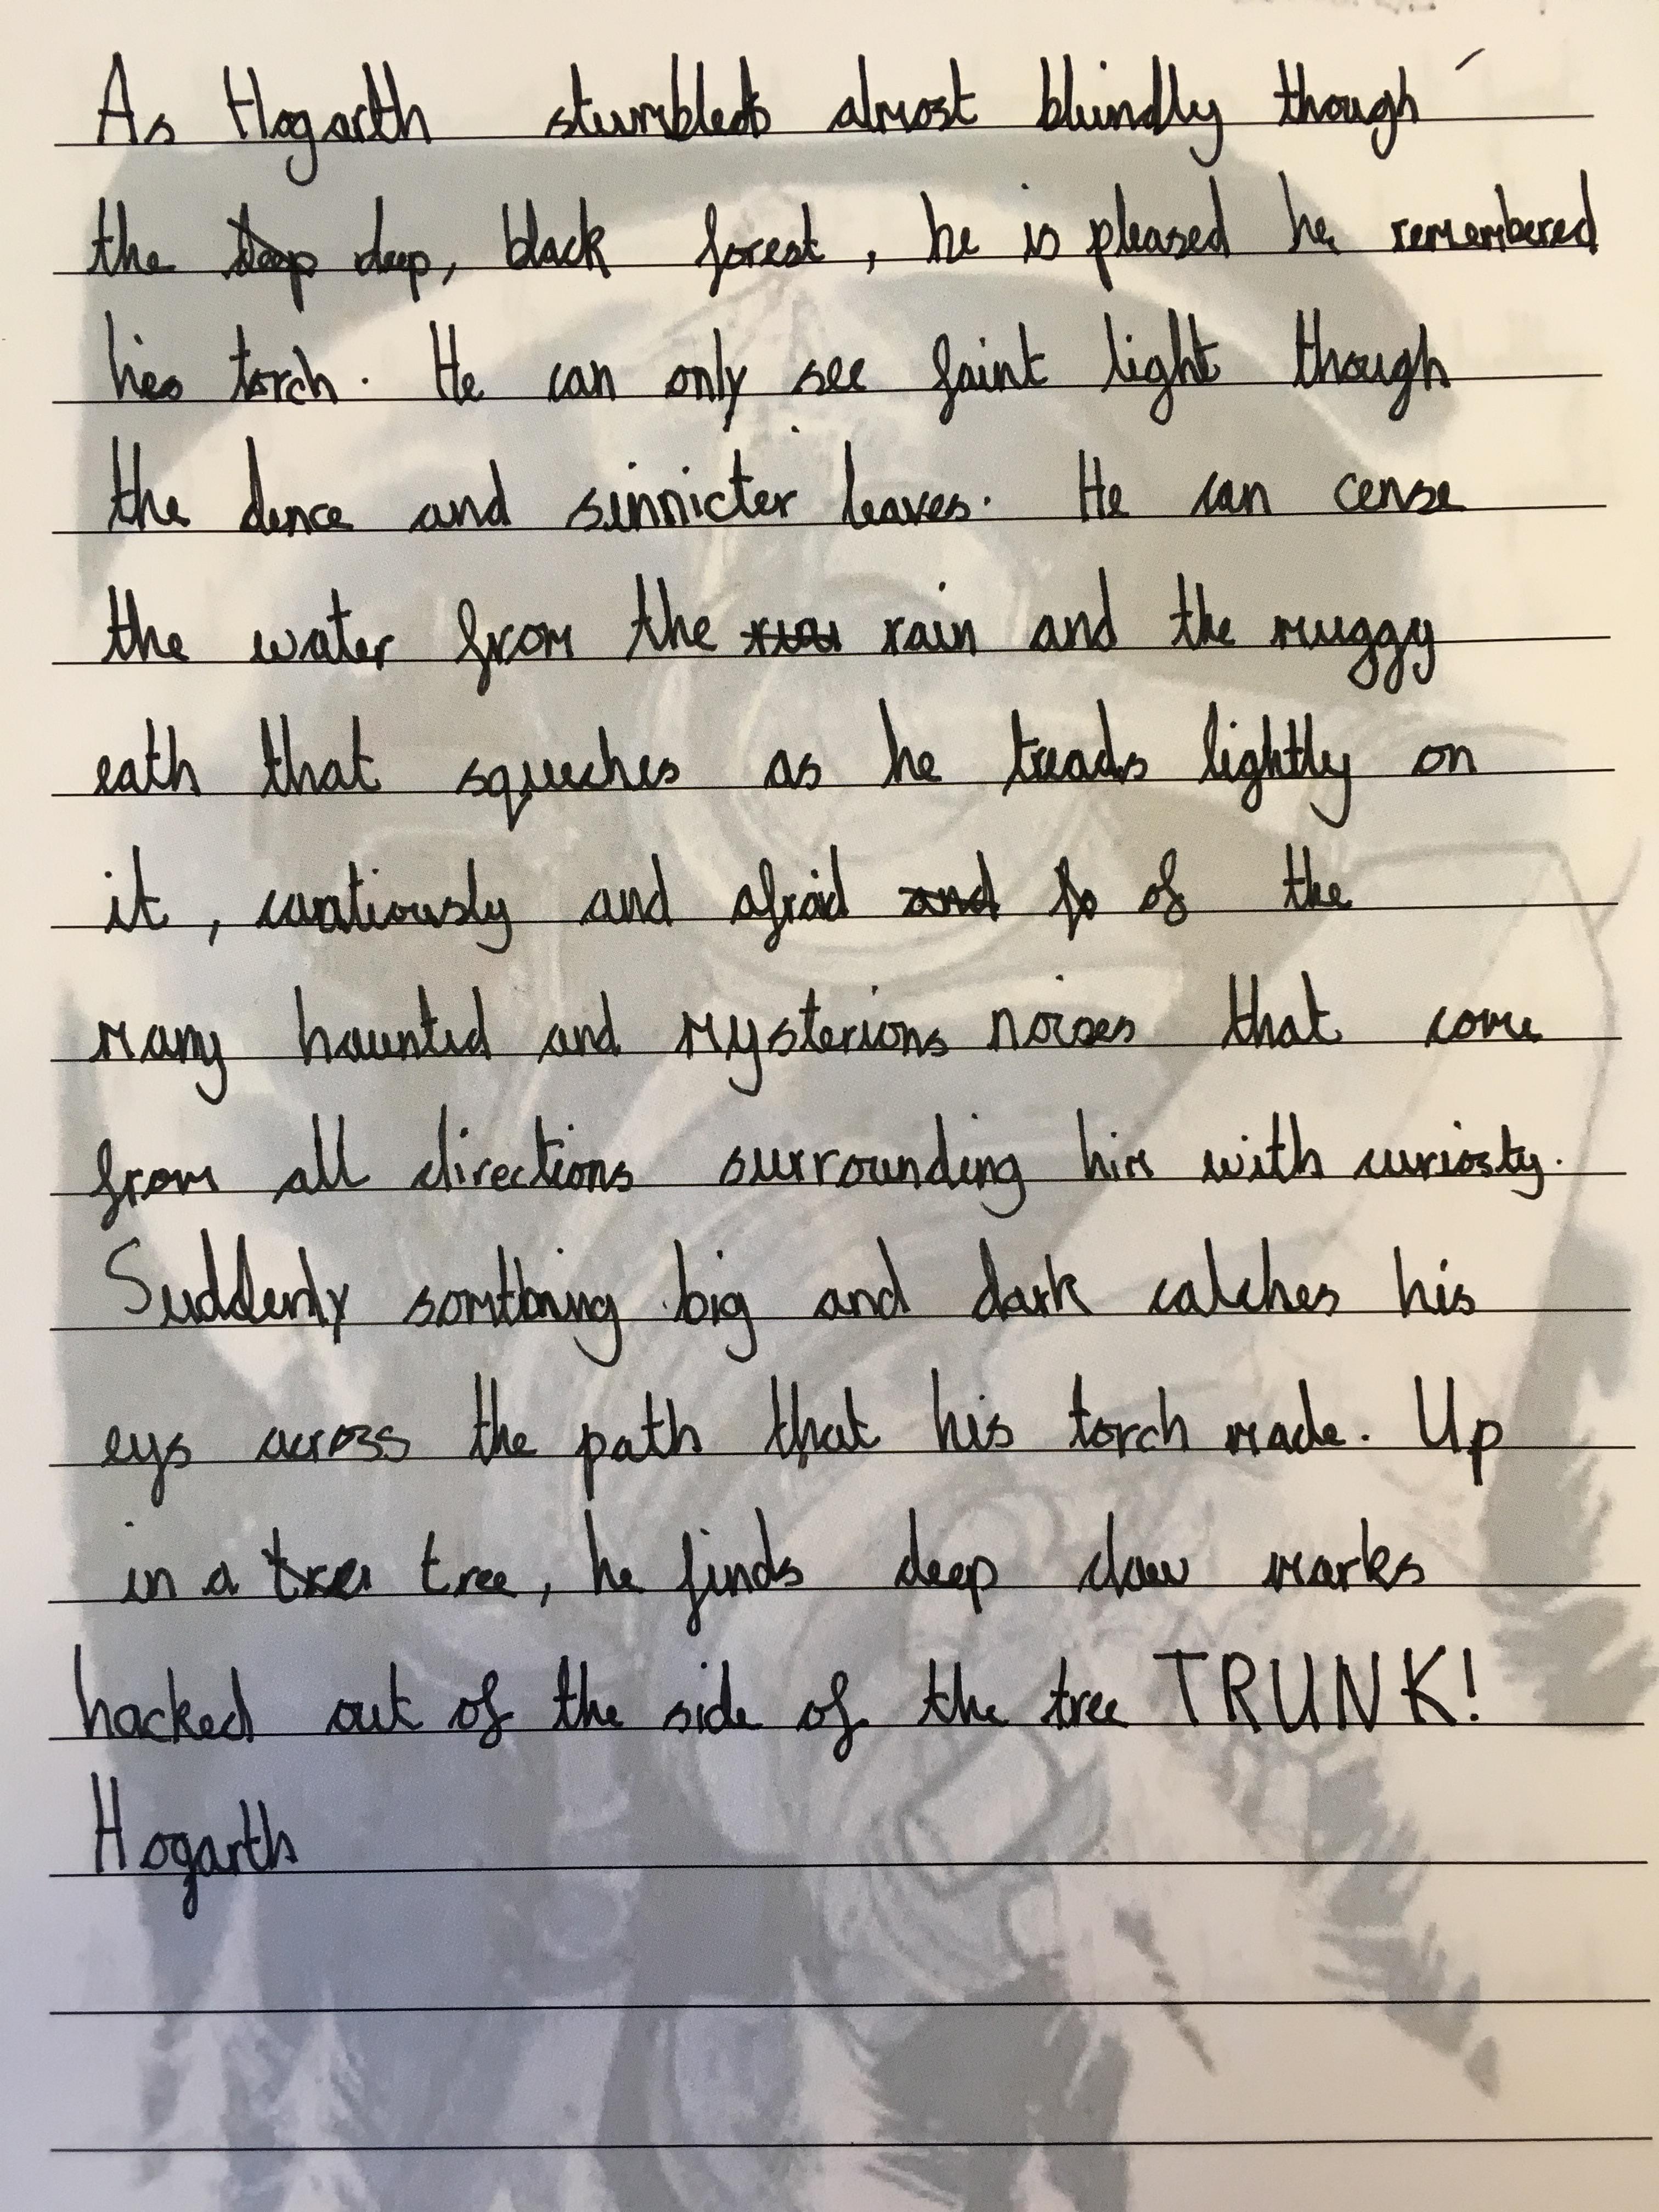 As Hogarth stumbles almost blindly though
the deep, black forest, he is pleased he remembered
his torch. He can only see faint light though
the dence and sinnicter leaves. He can cense
the water from the rain and the muggy
eath that squeches as he treads lightly on
it, cautiously and afraid of the
many haunted and mysterious noises that come
from all directions surrounding him with curiosty.
Suddenly somthing big and dark catches his
eys across the path that his torch made. Up
in a tree, he finds deep claw marks
hacked out of the side of the tree TRUNK!
Hogarth